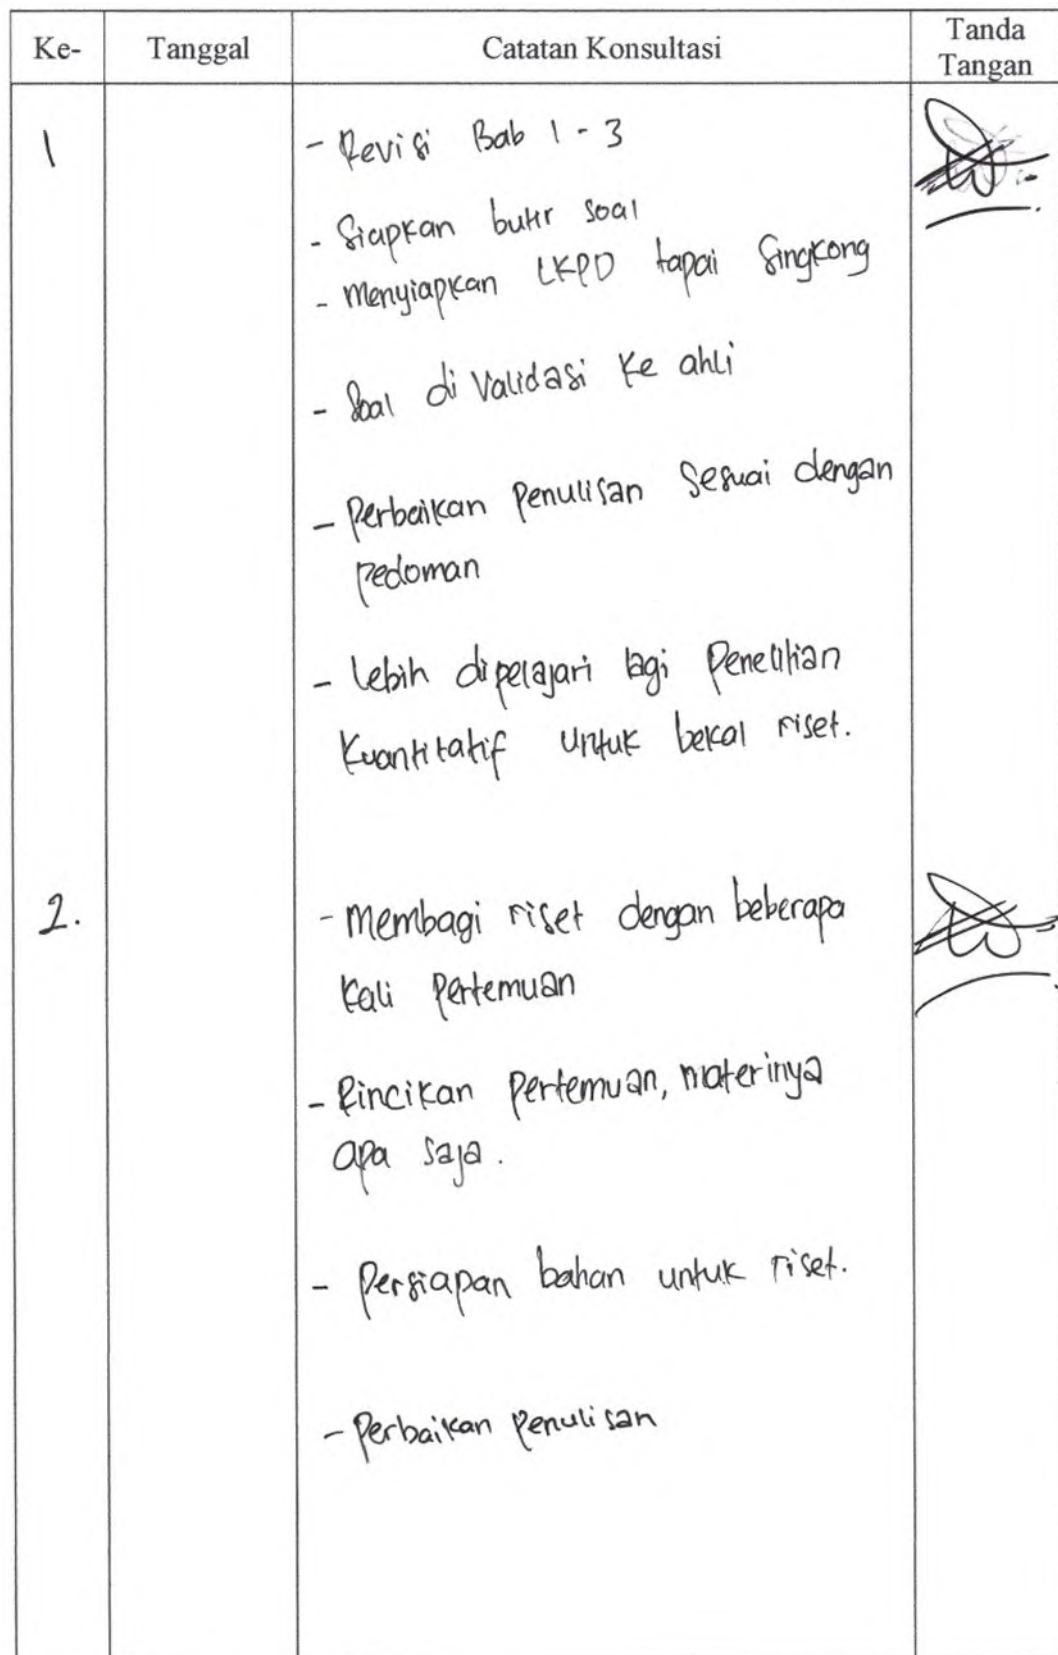 Ke- Tanggal Catatan Konsultasi Tanda
Tangan
1 - Revisi Bab 1 - 3
- Siapkan butir soal
- Menyiapkan LKPD tapai Singkong
- Soal di Validasi Ke ahli
- Perbaikan Penulisan Sesuai dengan
pedoman
- Lebih dipelajari lagi Penelitian
Kuantitatif Untuk bekal riset.
2. - Membagi riset dengan beberapa
Kali Pertemuan
- Rincikan Pertemuan, materinya
apa saja.
- Persiapan bahan untuk riset.
- Perbaikan Penulisan